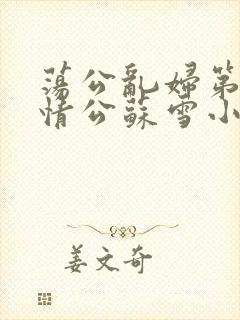 蕩公亂婦第
情公蘇雪小
姜文奇